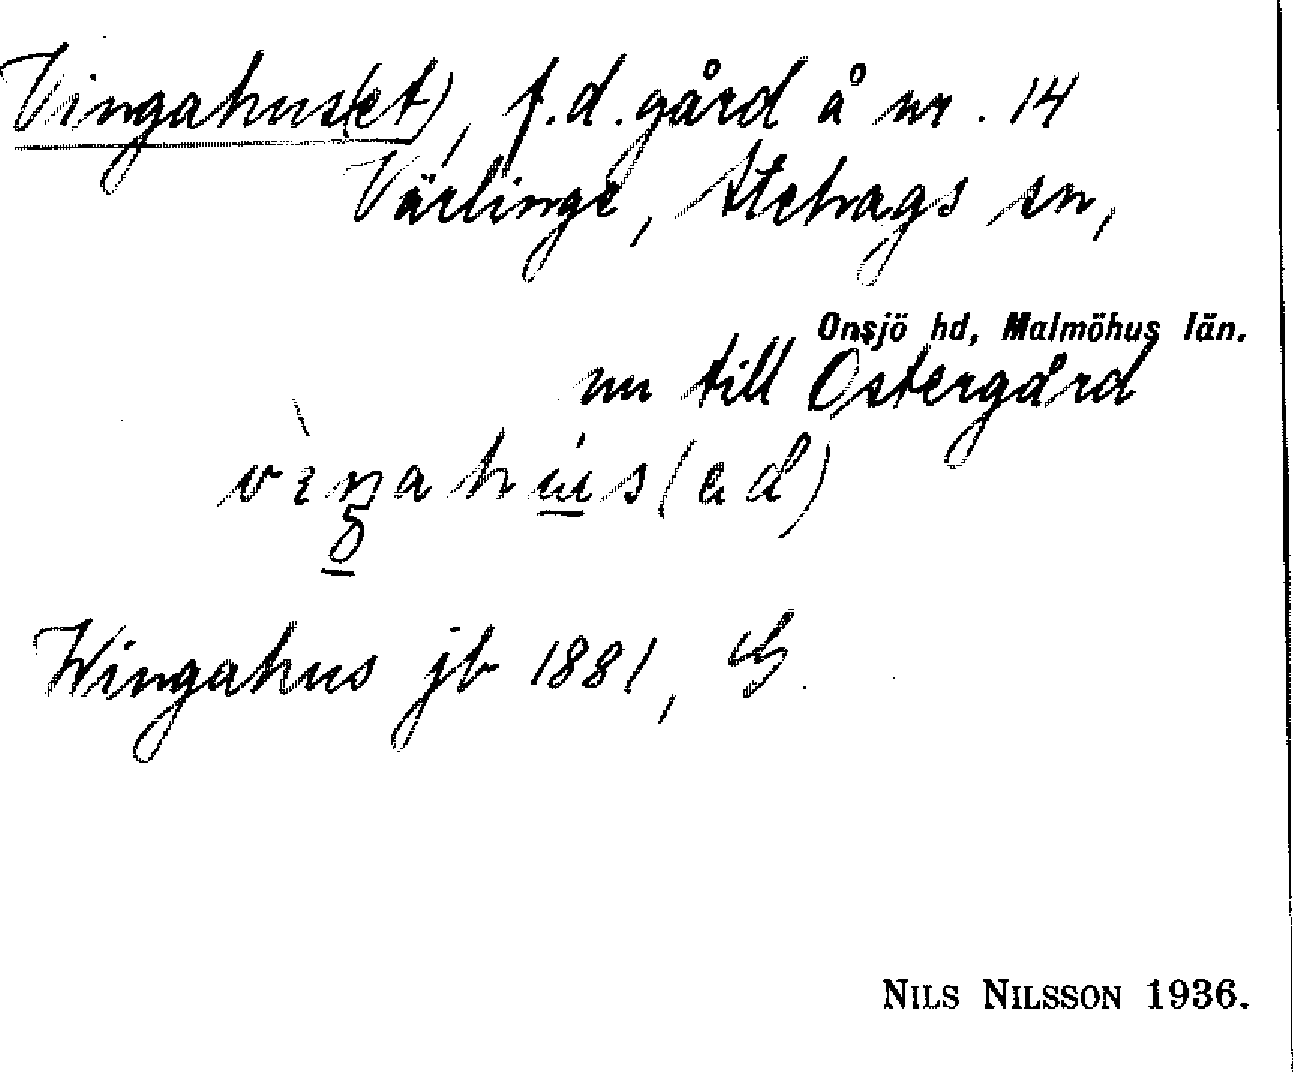 Vingahus(et), f.d. gård å nr. 14
Värlinge, Stehags sn,
Onsjö hd, Malmöhus län.
nu till Östergård
Wingahus jb 1881,
NILS NILSSON 1936.